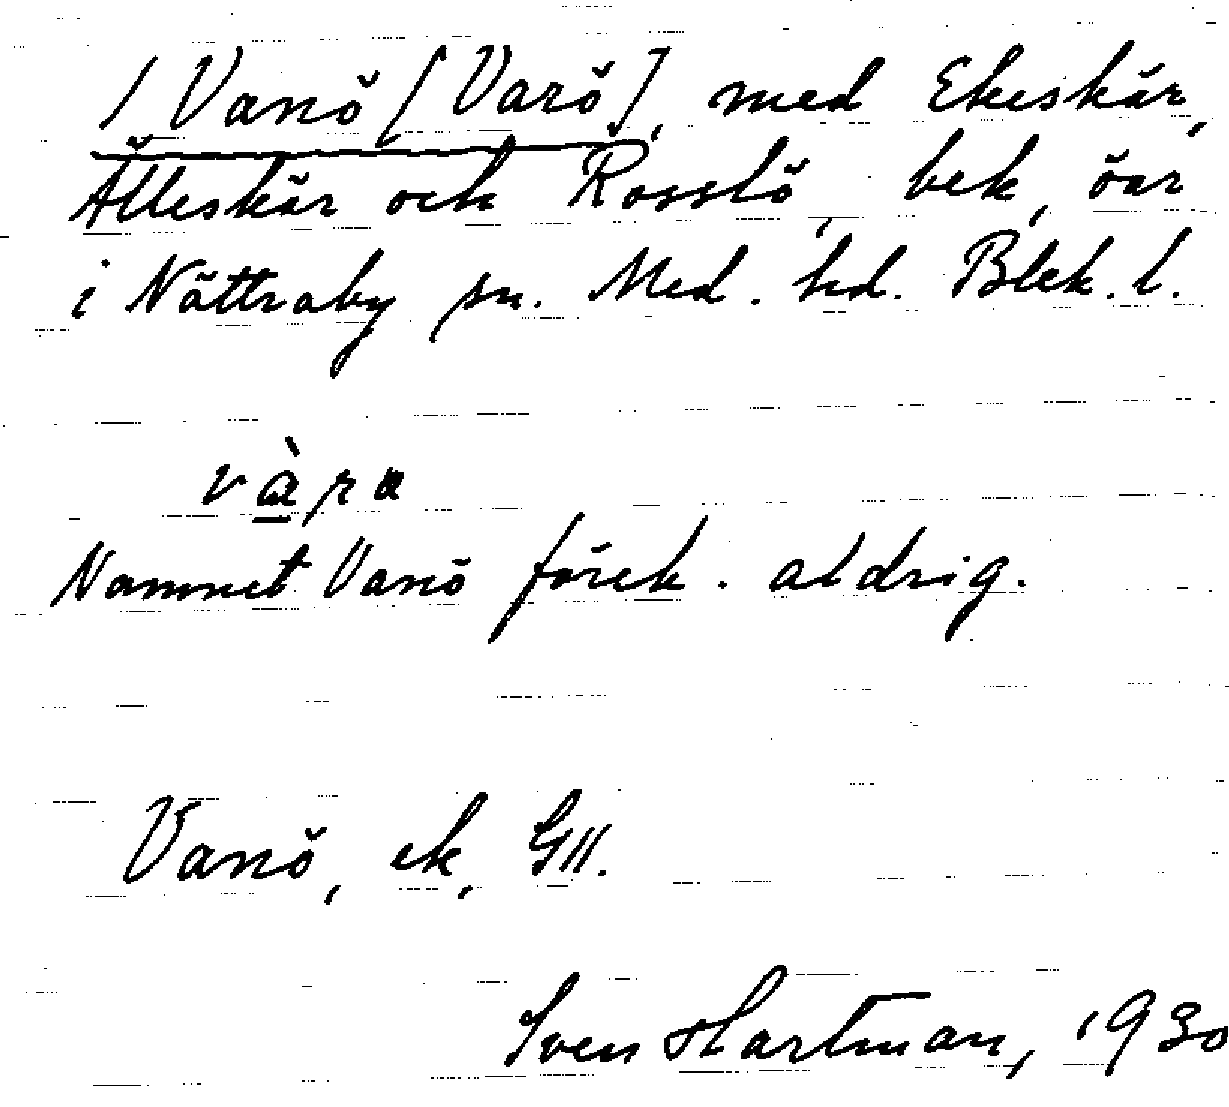 / Vanö [Varö], med Ekeskär,
Älleskär och Rosslö, bek, öar
i Nättraby sn. Med. hd. Blek. l.
vàra
Namnet Vanö förek. aldrig.
Vanö, ek, G11.
Sven Hartman, 1930